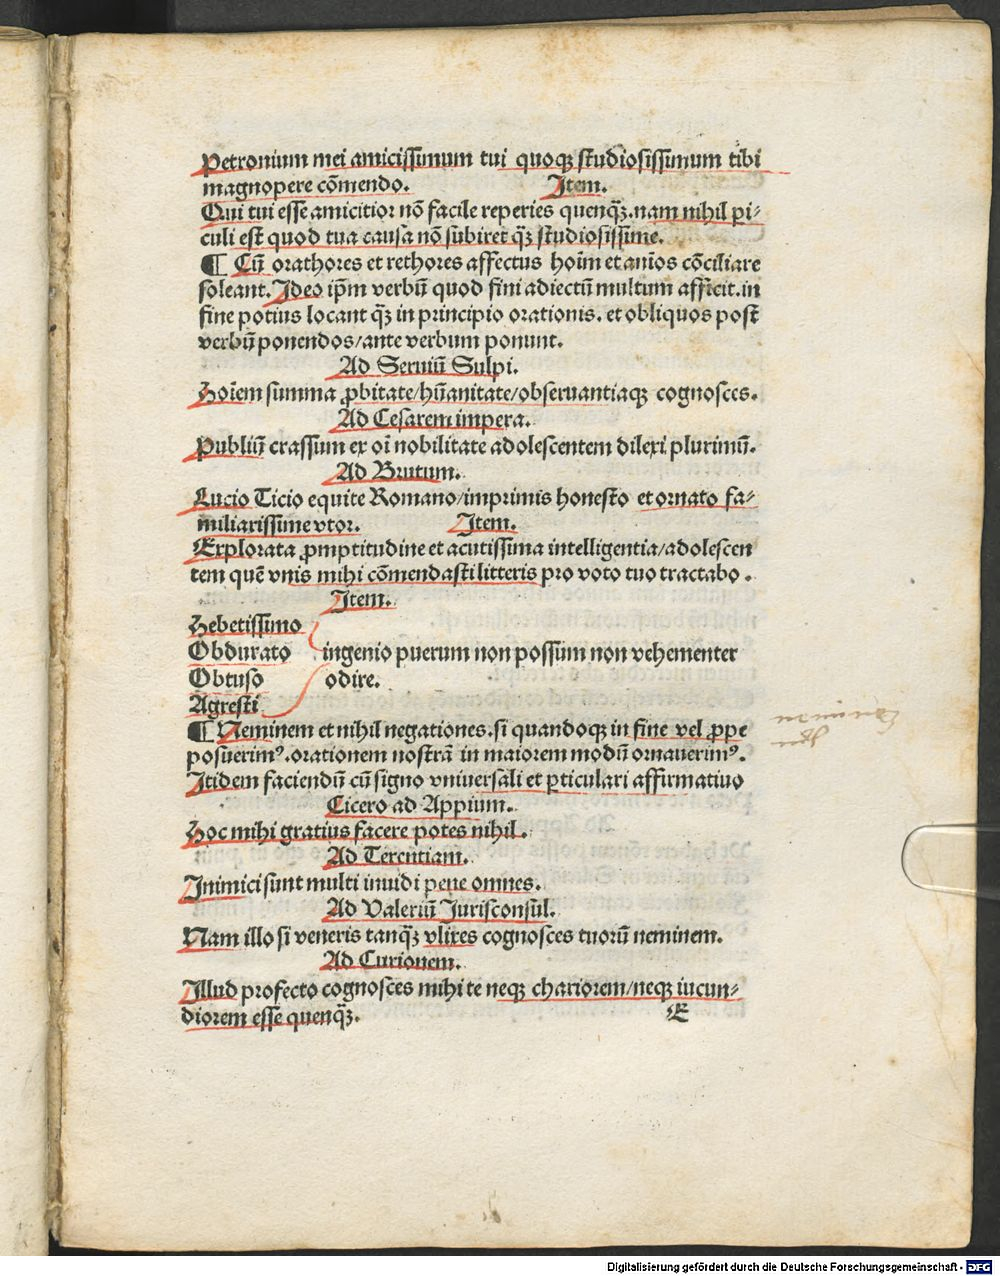 Petronium mei amicissimum tui quoqꝫ studiosissimum tibi
magnopere cōmendo. Item.
Qui tui esse amicitior nō facile reperies quenqꝫ̄. nam nihil pi⸗
culi est quod tua causa nō subiret qꝫ̄ studiosissime.
¶ Cū orathores et rethores affectus hoīm et aīos cōciliare
soleant. Ideo ip̄m verbū quod fini adiectū multum afficit. in
fine potius locant qꝫ̄ in principio orationis. et obliquos post
verbū ponendos/ante verbum ponunt.
Ad Seruiū Sulpi.
Hoīem summa ꝓbitate/hūanitate/obseruantiaqꝫ cognosces.
Ad Cesarem impera.
Publiū crassum ex oī nobilitate adolescentem dilexi plurimū.
Ad Brutum.
Lucio Ticio equite Romano/imprimis honesto et ornato fa⸗
miliarissime vtor. Item.
Explorata ꝓmptitudine et acutissima intelligentia/adolescen
tem quē vnis mihi cōmendasti litteris pro voto tuo tractabo.
Item.
Hebetissimo
Obdurato ingenio puerum non possum non vehementer
Obtuso odire.
Agresti
¶ Neminem et nihil negationes. si quandoqꝫ in fine vel ꝓpe
posuerimꝰ. orationem nostrā in maiorem modū ornauerimꝰ.
Itidem faciendū cū signo vniuersali et ꝑticulari affirmatiuo
Cicero ad Appium.
Hoc mihi gratius facere potes nihil.
Ad Terentiam.
Inimici sunt multi inuidi pene omnes.
Ad Valeriū Jurisconsul.
Nam illo si veneris tanqꝫ̄ vlixes cognosces tuorū neminem.
Ad Curionem.
Illud profecto cognosces mihi te neqꝫ chariorem/neqꝫ iucun⸗
diorem esse quenqꝫ̄.
E
Digitalisierung gefördert durch die Deutsche Forschungsgemeinschaft - DFG